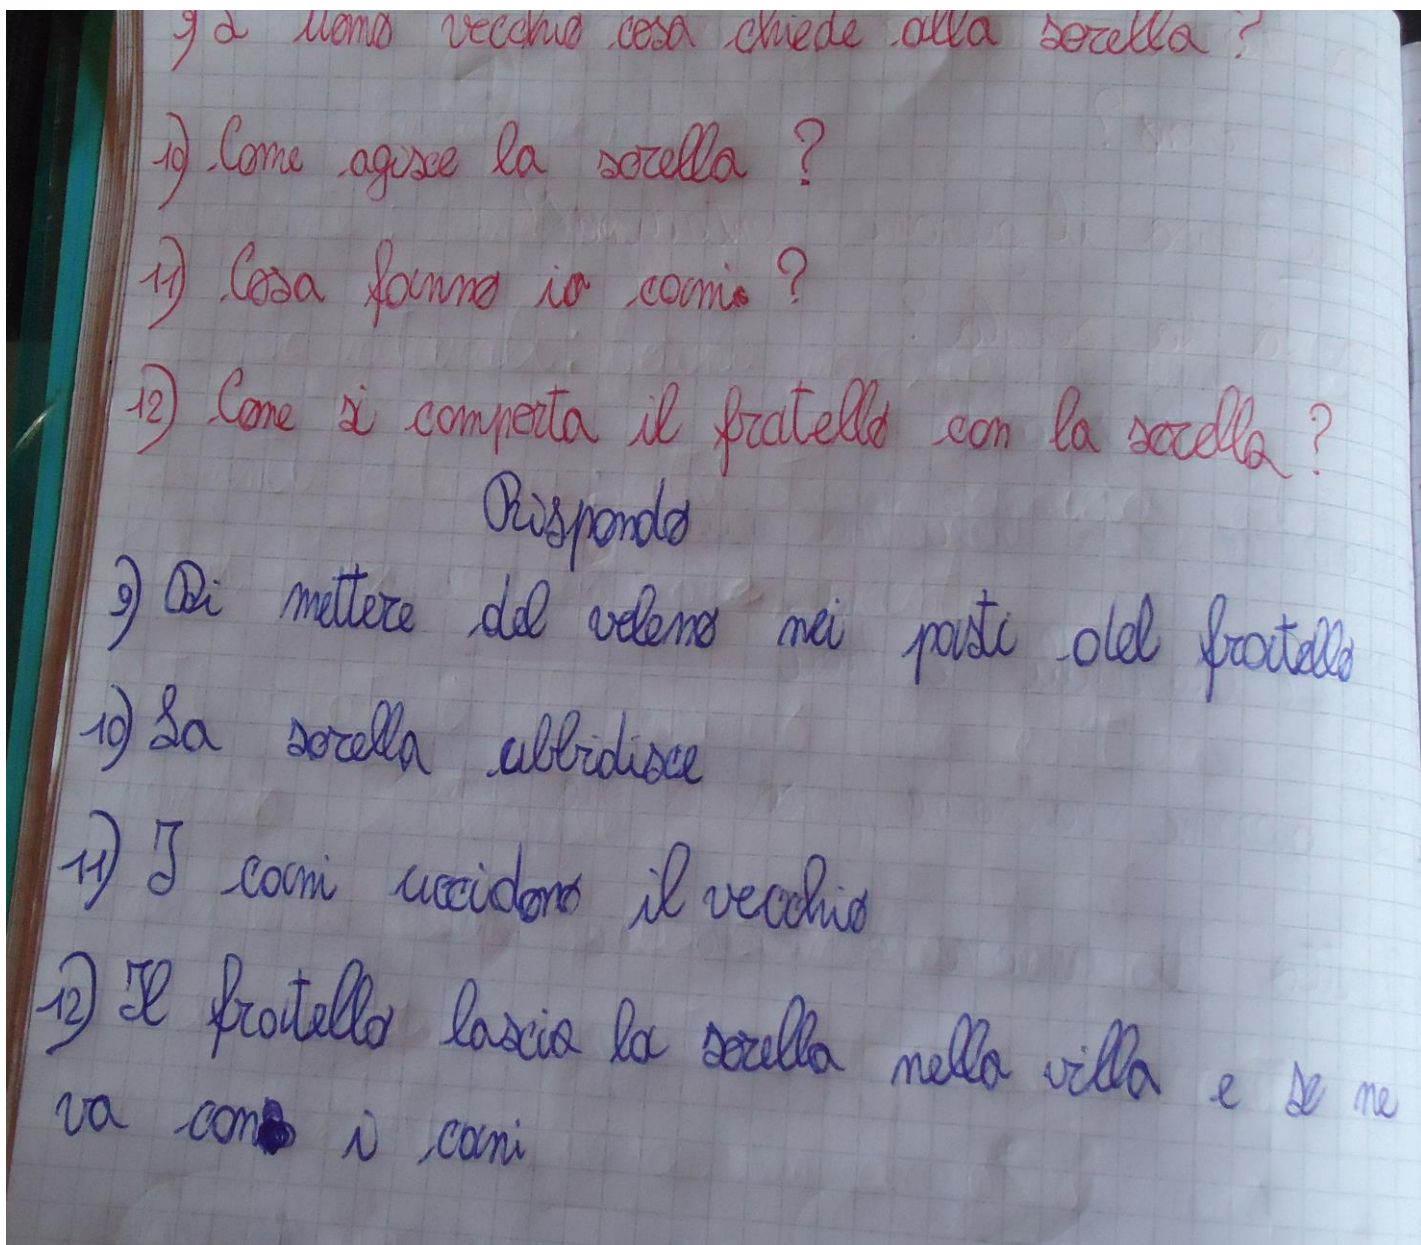 9) L uomo vecchio cosa chiede alla sorella ?
10) Come agisce la sorella ?
11) Cosa fanno i cani ?
12) Come si comporta il fratello con la sorella ?
Rispondo
9) Di mettere del veleno nei pasti del fratello
10) La sorella ubbidisce
11) I cani uccidono il vecchio
12) Il fratello lascia la sorella nella villa e se ne
va con i cani